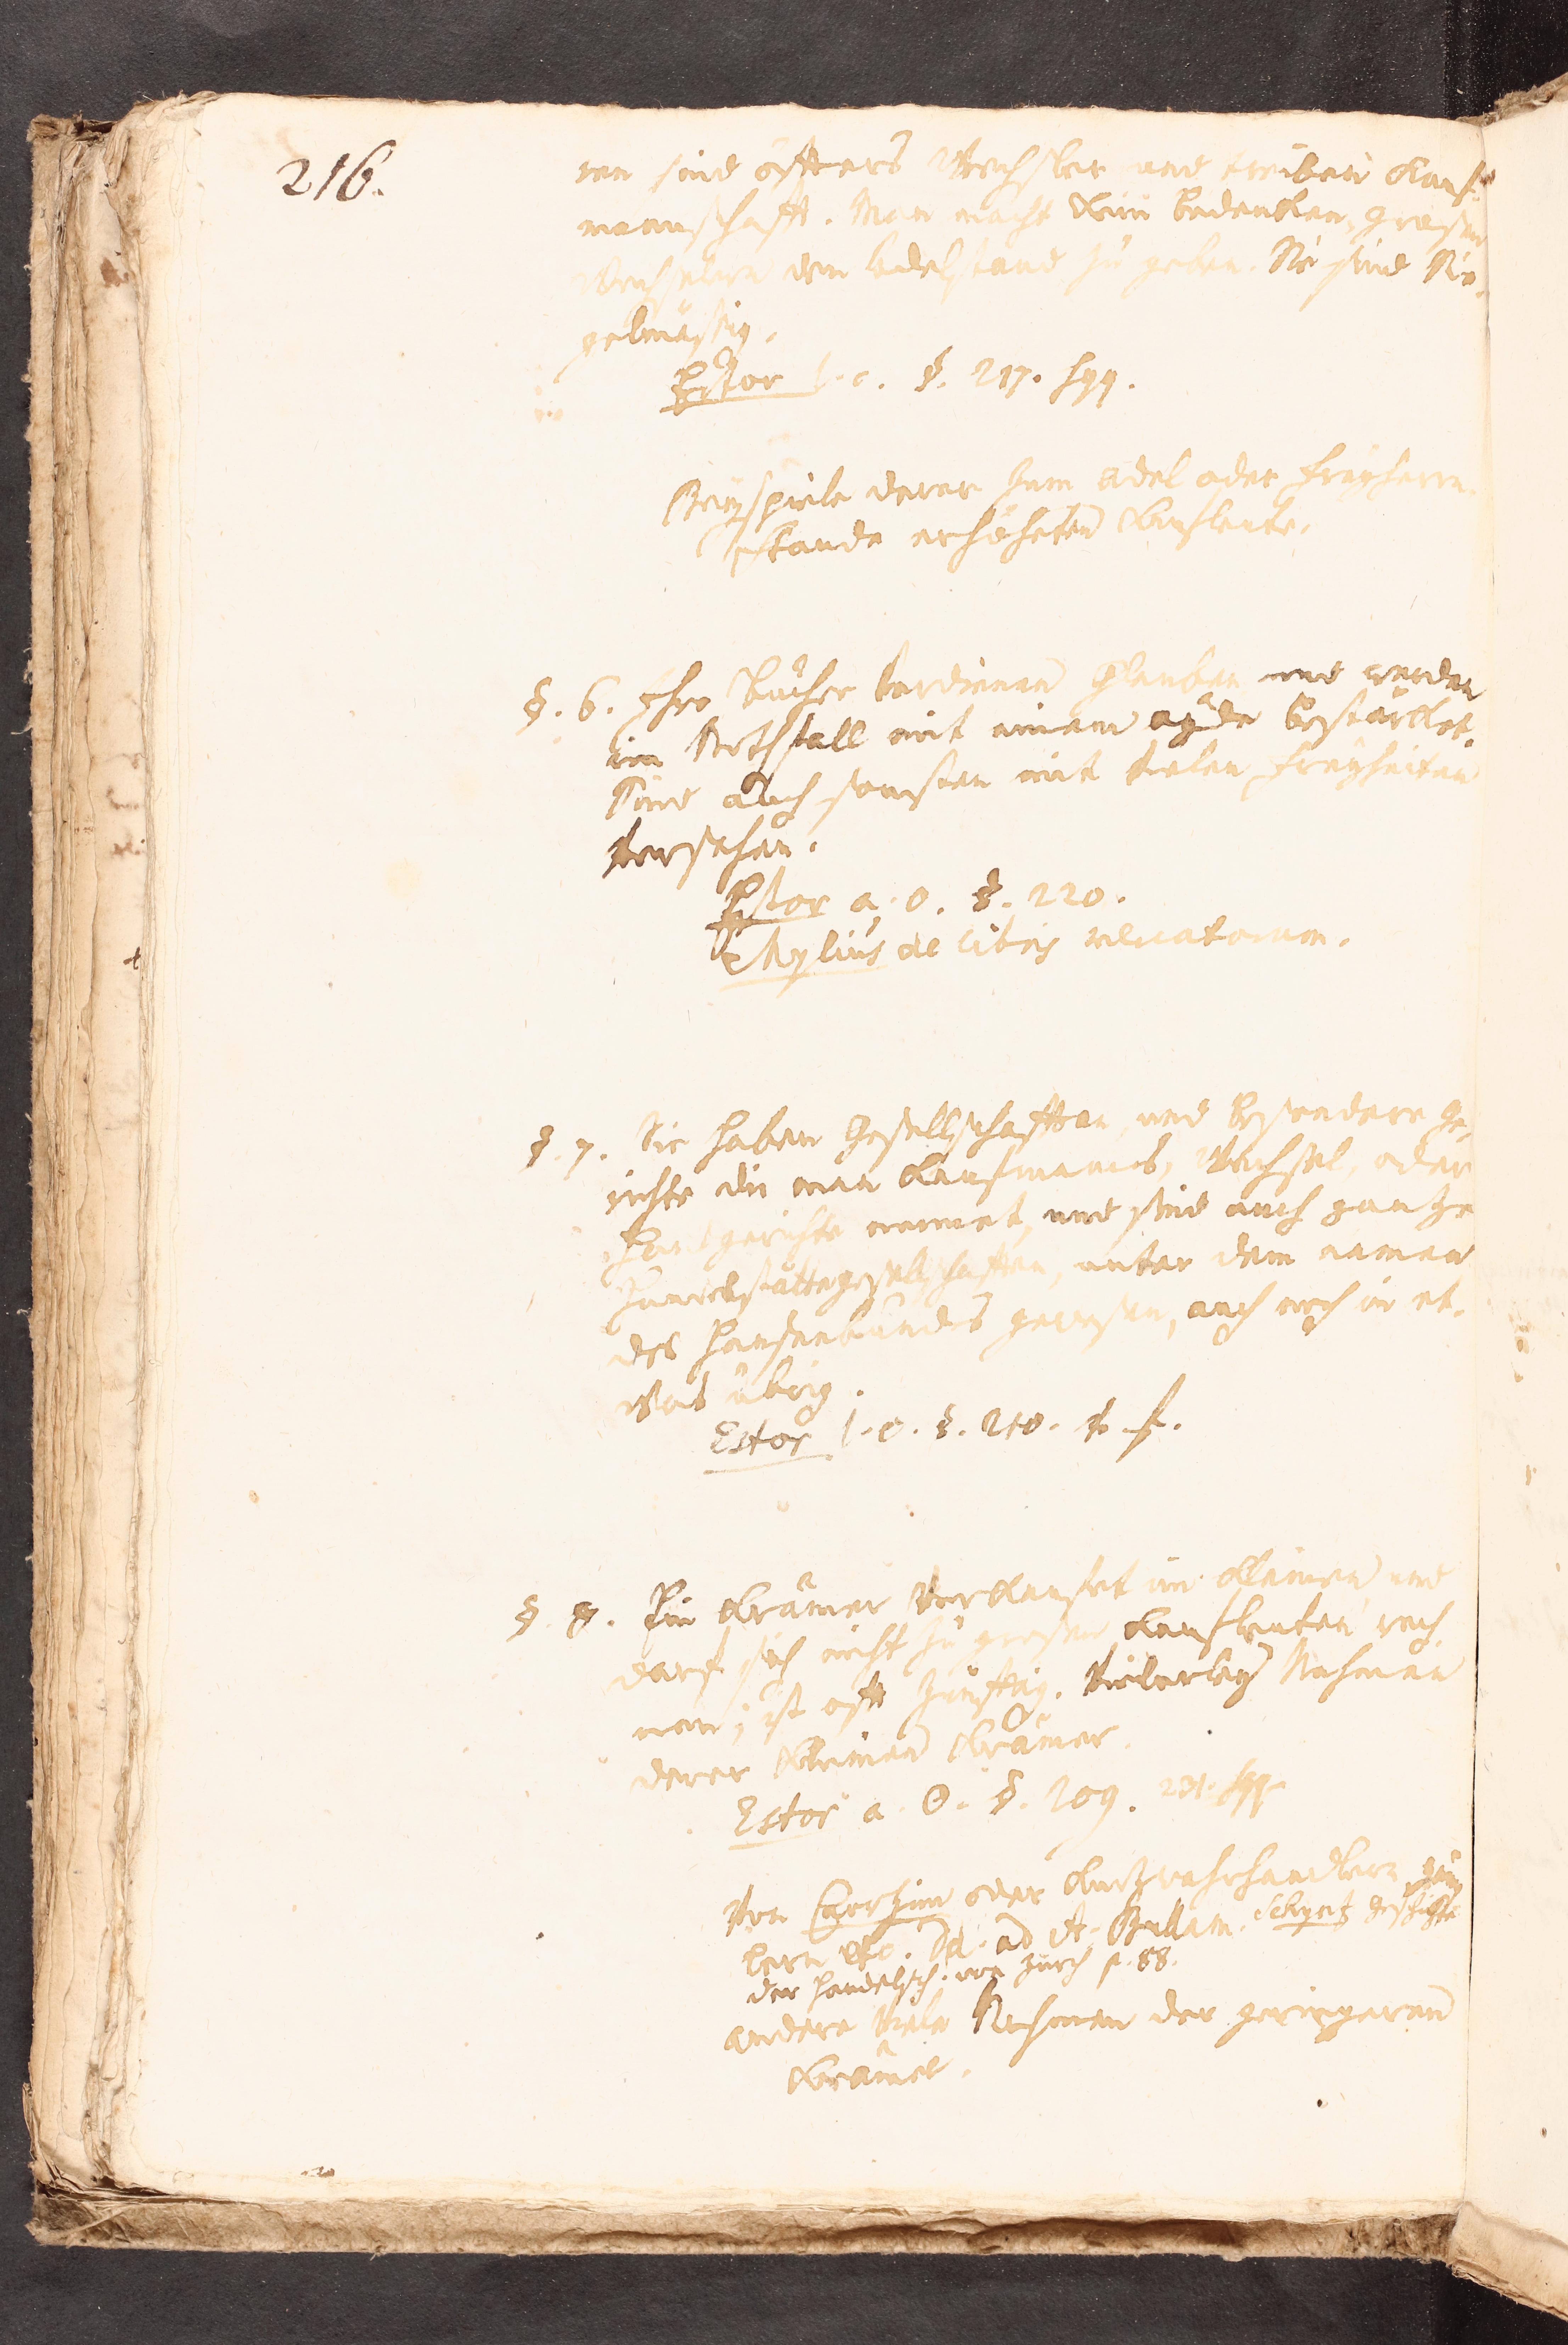 216.
ren sind öffters Wechsler und treiben Kauf-
mannschafft. Man macht kein Bedencken, grosen
Wechslern den Adelstand zu geben. Sie sind Sie-
gelmässig.
Estor l. c. §. 217. sqq.
Beyspiele derer zum Adel oder Freyherrn-
stande erhöheten Kaufleute.
§. 6. Ihre Bücher verdienen Glauben und werden
im Nothfall mit einem ayde bestärcket.
Sind auch sonsten mit vielen Freyheiten
versehen.
Estor a. O. §. 220.
Mylius de libris mercatorum.
§. 7. Sie haben Gesellschafften, und besondere Ge-
richte die man Kaufmanns, Wechsel, oder
gerichte nennet, und sind auch gantze
Handelsstättegesellschafften, unter dem namen
des Hanseebundes gewesen, auch noch in et-
was übrig.
Estor l. c. §. 210.
§. 8. Ein Krämer verkaufet im kleinen und
darf sich nicht zu grosen Kaufleuten rech-
nen; ist offt zünfftig. Vielerley Nahmen
derer kleinen Krämer.
Estor a. O. §. 209. 231. sqq.
Von oder Kurtzwahrhandlern,
Schyntz Geschichte
der Handelsch. von Zürch p. 88.
andere viele Nahmen der geringeren
Krämer.